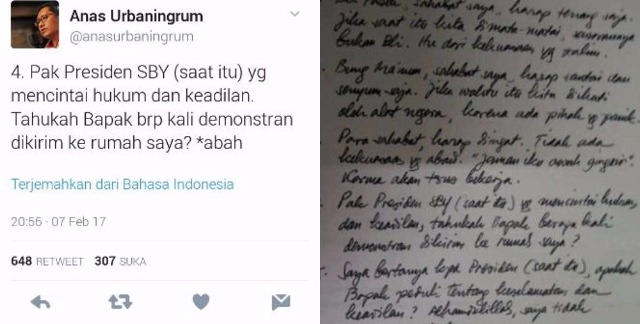 Anas Urbaningrum
@anasurbaningrum
4. Pak Presiden SBY (saat itu) yg
mencintai hukum dan keadilan.
Tahukah Bapak brp kali demonstran
dikirim ke rumah saya? *abah
Terjemahkan dari Bahasa Indonesia
20:56 · 07 Feb 17
648 RETWEET 307 SUKA
sahabat saya, harap tenang saja.
Jika saat itu kita dimata-matai,
bukan Eli. Itu dari kekuasaan yg zalim.
sahabat saya, harap santai dan
senyum saja. Jika waktu itu kita
oleh alat negara, karena ada pihak yg panik.
Para sahabat, harap diingat. Tidak ada
kekuasaan yg abadi. "Jaman iku owah gingsir".
Karma akan terus bekerja.
Pak Presiden SBY (saat itu) yg mencintai hukum
dan keadilan, tahukah Bapak berapa kali
demonstran dikirim ke rumah saya?
Saya bertanya kpd Presiden (saat itu), apakah
Bapak peduli tentang keselamatan dan
keadilan? Alhamdulillah, saya tidak